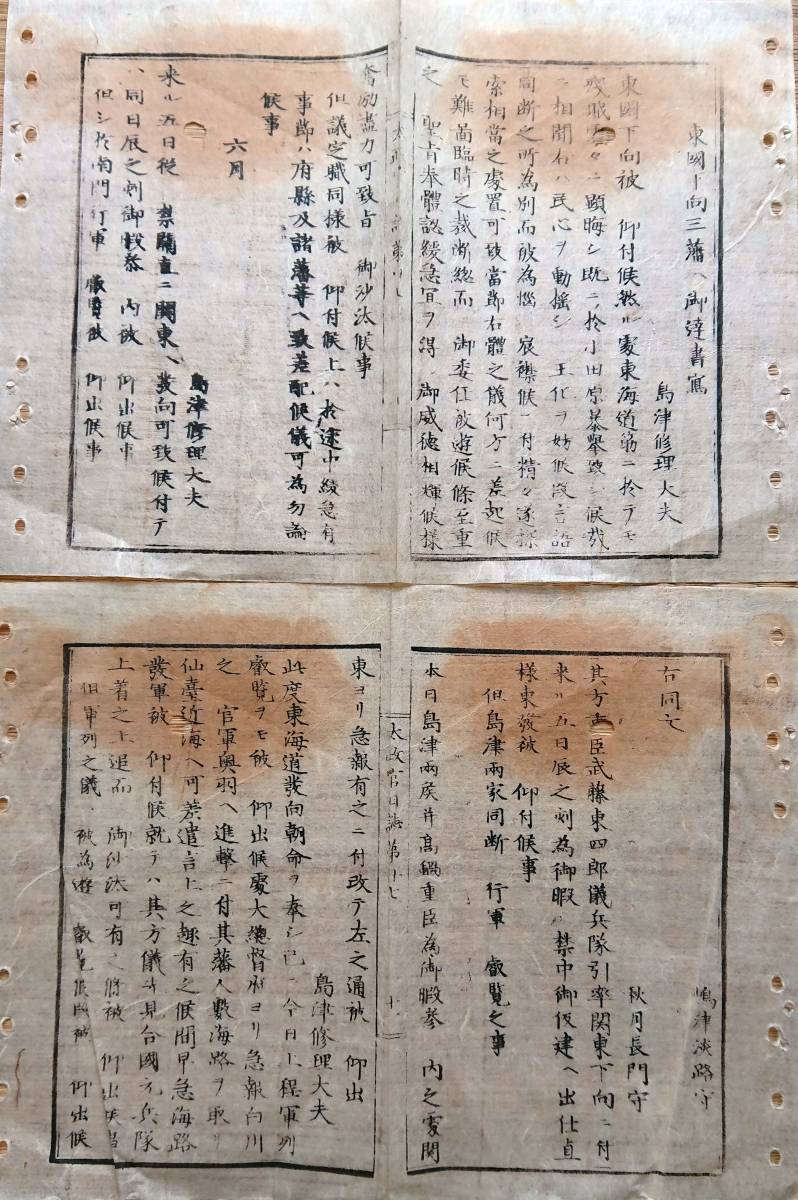 東國下向三藩ヘ御達書寫
島津修理大夫
東國下向被 仰付候然ル處東海道筋ニ於テモ
賊雲々ニ顕晦シ既ニ於小田原暴擧致シ候哉
ニ相聞右ハ民心ヲ動揺シ 王化ヲ妨候段言語
同断之所為別而被為悩 宸襟候ニ付精々遂探
索相當之處置可致當節右體之儀何方ニ差起候
モ難啚臨時之裁断総而 御委任被遊候條至重
之 聖旨奉體認緩急宜ヲ得 御威徳相輝候様
奮励盡力可致旨 御沙汰候事
但議定職同様被 仰付候上ハ於途中緩急有
事節ハ府縣及諸藩等ヘ致差配候儀可為勿論
候事
六月
島津修理大夫
来ル五日従 禁闕直ニ関東ヘ發向可致候付テ
ハ同日辰之刻御暇参 内被 仰出候事
但シ於南門行軍 叡覧被 仰出候事
嶋津淡路守
右同文
秋月長門守
其方重臣武藤東四郎儀兵隊引率関東下向ニ付
来ル五日辰之刻為御暇 禁中御仮建ヘ出仕直
様東發被 仰付候事
但島津兩家同断 行軍 叡覧之事
本日島津兩侯并高鍋重臣為御暇参 内之處関
太政官日誌第廿七
十一
東ヨリ急報有之ニ付改テ左之通被 仰出
島津修理大夫
此度東海道發向朝命ヲ奉シ已ニ今日上程軍列
叡覧ヲモ被 仰出候處大總督府ヨリ急報白川
之 官軍奥羽ヘ進撃ニ付其藩人數海路ヲ取リ
仙臺近海ヘ可差遣言上之趣有之候間早急海路
發軍被 仰付候就テハ其方儀ハ見合國元兵隊
上着之上追而 御沙汰可有之條被 仰出候事
但軍列之儀ハ被為遊 叡覧候段被 仰出候